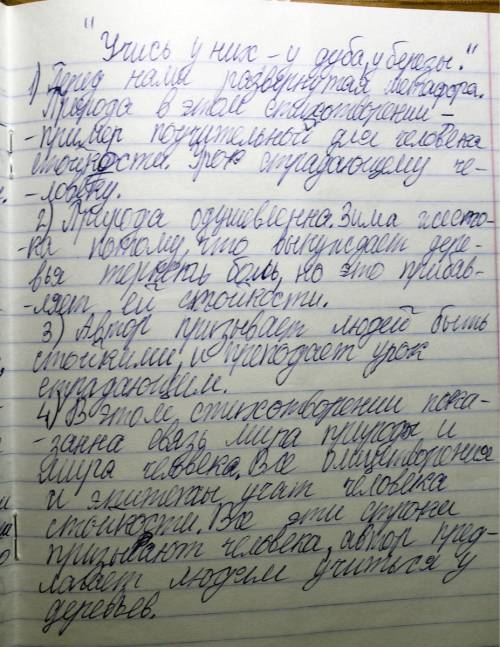 "Учись у них – у дуба, у березы."
1) Перед нами развернутая метафора.
Природа в этом стихотворении –
-пример поучительной для человека
стойкости. Урок страдающему че-
-ловеку.
2) Природа одушевленна. Зима жесто-
-ка потому, что вынуждает дере-
вья терпеть боль, но это прибав-
-ляет ей стойкости.
3) Автор призывает людей быть
стойкими и преподает урок
страдающим.
4) В этом стихотворении пока-
-занна связь мира природы и
мира человека. Все олицетворения
и эпитеты учат человека
стойкости. Все эти строки
призывают человека, автор пред-
лагает людям учиться у
деревьев.